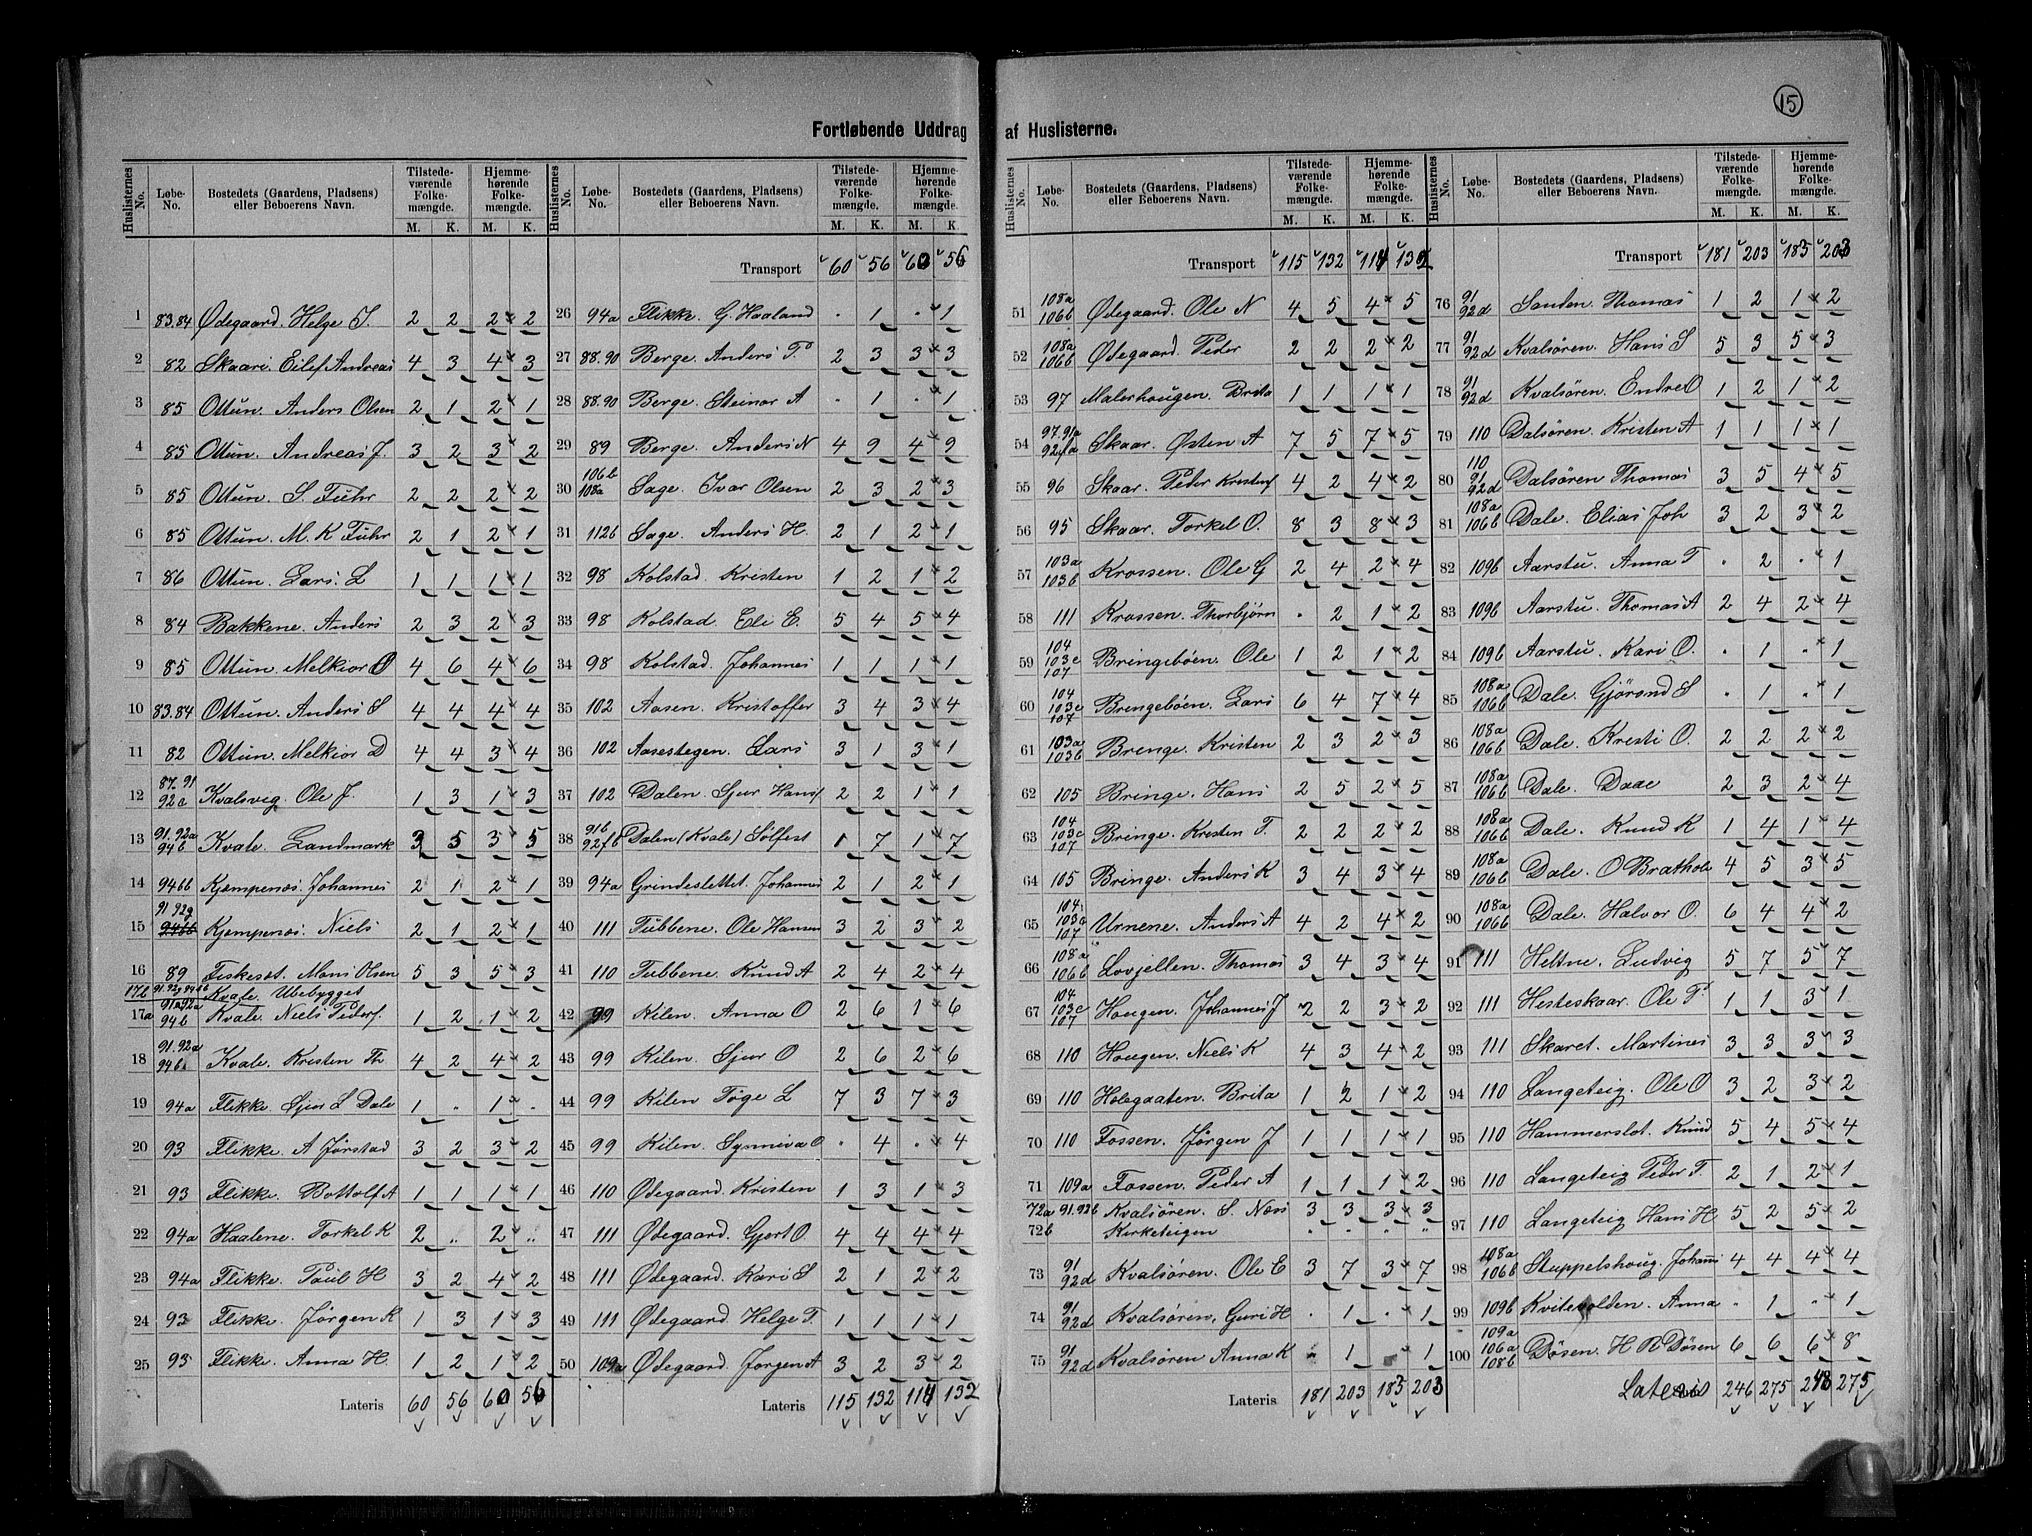 15
Fortløbende Uddrag af Huslisterne.
Huslisternes No. Løbe-No. Bostedets (Gaardens, Pladsens) eller Beboerens Navn. Tilstedeværende Folkemængde. M. K. Hjemmehørende Folkemængde. M. K.
1 83.84 Ødegaard. Helge J. 2 2 2 2
2 82 Skaari. Eilef Andreas 4 3 4 3
3 85 Ottun. Anders Olsen 2 1 2 1
4 85 Ottun. Andreas J. 3 2 3 2
5 85 Ottun. S. Führ 2 2 2 2
6 85 Ottun. M. K Führ 2 1 2 1
7 86 Ottun. Lars. L 1 1 1 1
8 84 Bakkene. Anders 2 3 2 3
9 85 Ottun. Melkior O 4 6 4 6
10 83.84 Ottun. Anders S 4 4 4 4
11 82 Ottun. Melkior D 4 4 3 4
12 87.91 92c Kvalsvig. Ole J. 1 3 1 3
13 91.92a 94b Kvale. Landmark 3 5 3 5
14 94bb Kjempenæs. Johannes 2 1 2 1
15 91 92g 94bb Kjempenæs. Niels 2 1 2 1
16 89 Fiskesæt. Mons Olsen 5 3 5 3
17b 91.92g 94bb Kvale. Ubebygget
17a 91a92a 94b Kvale. Niels Pedersf. 1 2 1 2
18 91.92a 94b Kvale. Kristen Th 4 2 4 2
19 94a Flikke. Sjur L Dale 1 " 1 "
20 93 Flikke. A Jørstad 3 2 3 2
21 93 Flikke. Bottolf A 1 1 1 1
22 94a Haalene. Torkel K 2 " 2 "
23 94a Flikke. Paul H 3 2 4 2
24 93 Flikke. Jørgen K 1 3 1 3
25 93 Flikke. Anna H. 1 2 1 2
Lateris 60 56 60 56
Huslisternes No. Løbe-No. Bostedets (Gaardens, Pladsens) eller Beboerens Navn. Tilstedeværende Folkemængde. M. K. Hjemmehørende Folkemængde. M. K.
Transport 60 56 60 56
26 94a Flikke. G. Haaland " 1 " 1
27 88.90 Berge. Anders P. 2 3 3 3
28 88.90 Berge. Steinar A " 1 " 1
29 89 Berge. Anders N 4 9 4 9
30 106b 108a Sage. Ivar Olsen 2 3 2 3
31 112b Sage. Anders H. 2 1 2 1
32 98 Kolstad. Kristen 1 2 1 2
33 98 Kolstad. Eli E. 5 4 5 4
34 98 Kolstad. Johannes 1 1 1 1
35 102 Aasen. Kristoffer 3 4 3 4
36 102 Aasestegen. Lars 3 1 3 1
37 102 Dalen. Sjur Hansf 2 2 1 1
38 91b 92fb Dalen (Kvale) Solfest 1 7 1 7
39 94a Grindeslettet. Johannes 2 1 2 1
40 111 Tubbene. Ole Hansen 3 2 3 2
41 110 Tubbene. Knud A 2 4 2 4
42 99 Kilen. Anna O 2 6 1 6
43 99 Kilen. Sjur O 2 6 2 6
44 99 Kilen Tøge L 7 3 7 3
45 99 Kilen. Synniva O " 4 " 4
46 110 Ødegaard. Kristen 1 3 1 3
47 111 Ødegaard. Gjert O. 4 4 4 4
48 111 Ødegaard. Kari S 2 1 2 2
49 111 Ødegaard. Helge T. 1 1 1 1
50 109a Ødegaard. Jørgen A 3 2 3 2
Lateris 115 132 114 132
Huslisternes No. Løbe-No. Bostedets (Gaardens, Pladsens) eller Beboerens Navn. Tilstedeværende Folkemængde. M. K. Hjemmehørende Folkemængde. M. K.
Transport 115 132 114 132
51 108a 106b Ødegaard. Ole N 4 5 4 5
52 108a 106b Ødegaard. Peder 2 2 2 2
53 97 Malerhougen. Brita 1 1 1 1
54 97.91a 92fa Skaar. Østen A 7 5 7 5
55 96 Skaar. Peder Kristenf 4 2 4 2
56 95 Skaar. Torkel O. 8 3 8 3
57 103a 103b Krossen. Ole G 2 4 2 4
58 111 Krossen. Thorbjørn " 2 1 2
59 104 103c 107 Bringebøen. Ole 1 2 1 2
60 104 103c 107 Bringebøen. Lars 6 4 7 4
61 103a 103b Bringe. Kristen 2 3 2 3
62 105 Bringe. Hans 2 5 2 5
63 104 103c 107 Bringe. Kristen T. 2 2 2 2
64 105 Bringe. Anders K 3 4 3 4
65 104 103c 107 Urnene. Anders A 4 2 4 2
66 108a 106b Lovjellen. Thomas 3 4 3 4
67 104 103c 107 Hougen. Johannes J 2 2 3 2
68 110 Hougen. Niels K 4 3 4 2
69 110 Holegaaten. Brita 1 2 1 2
70 110 Fossen. Jørgen J 1 1 1 1
71 109a Fossen. Peder A 1 1 1 2
72a 91.92b Kvalsøren. S. Næss 3 3 3 3
72b Kirketeigen " " " "
73 91 92d Kvalsøren. Ole E 3 7 3 7
74 91 92d Kvalsøren. Guri H " 1 " 1
75 91 92d Kvalsøren Anna K " 1 " 1
Lateris 181 203 183 203
Huslisternes No. Løbe-No. Bostedets (Gaardens, Pladsens) eller Beboerens Navn. Tilstedeværende Folkemængde. M. K. Hjemmehørende Folkemængde. M. K.
Transport 181 203 183 203
76 91 92d Sanden. Thomas 1 2 1 2
77 91 92d Kvalsøren. Hans S 5 3 5 3
78 91 92d Kvalsøren. Endre O 1 2 1 2
79 110 Dalsøren. Kristen A 1 1 1 1
80 110 91 92d Dalsøren Thomas 3 5 4 5
81 108a 106b Dale. Elias Joh 3 2 3 2
82 109b Aarstu. Anna T " 2 " 1
83 109b Aarstu. Thomas A 2 4 2 4
84 109b Aarstu. Kari O. " 1 " 1
85 108a 106b Dale. Gjørond S " 1 " 1
86 108a 106b Dale. Kristi O. 2 2 2 2
87 108a 106b Dale. Daae 2 3 2 4
88 108a 106b Dale. Knud K 1 4 1 4
89 108a 106b Dale. O Brathole 4 5 3 5
90 108a 106b Dale. Halvor O. 6 4 4 2
91 111 Heltne. Ludvig 5 7 5 7
92 111 Hesteskaar. Ole P. 1 1 3 1
93 111 Skaret. Martines 3 3 3 3
94 110 Langeteig. Ole O 3 2 3 2
95 110 Hammerslot. Knud 5 4 5 4
96 110 Langeteig Peder T. 2 1 2 1
97 110 Langeteig Hans H 5 2 5 2
98 108a 106b Stuppelshoug. Johanns 4 4 4 4
99 109b Kvitevolden. Anna " 1 " 1
100 109a 106a 108b Døsen. H R Døsen 6 6 6 8
Lateris 246 275 248 275